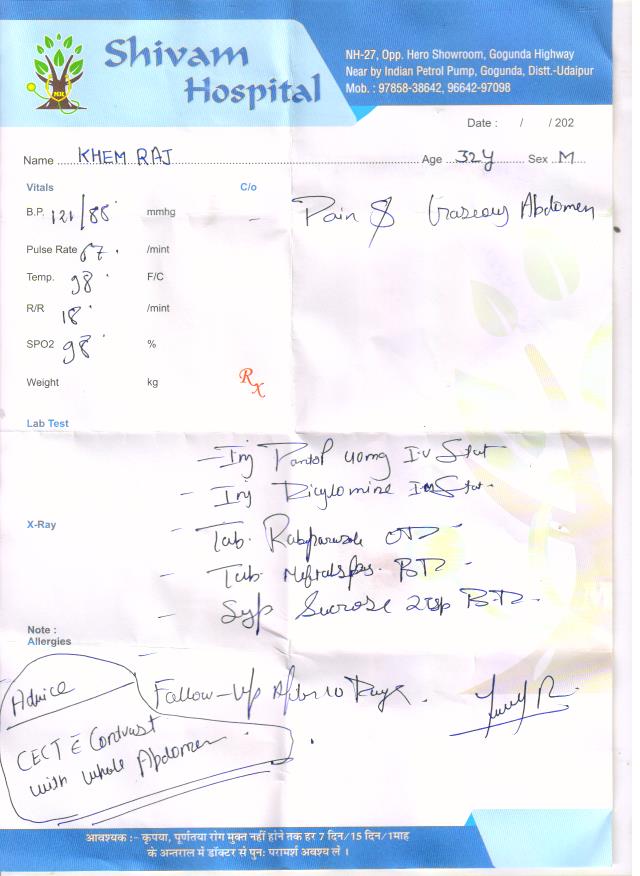 Shivam
Hospital
NH-27, Opp. Hero Showroom, Gogunda Highway
Near by Indian Petrol Pump, Gogunda, Distt.-Udaipur
Mob. : 97858-38642, 96642-97098
Date : / / 202
Name KHEM RAJ Age 32y Sex M
Vitals C/o
B.P. 121/88 mmhg
Pain & Gaseous Abdomen
Pulse Rate 67 /mint
Temp. 98 F/C
R/R 18 /mint
SPO2 98 %
Weight kg Rx
Lab Test
- Inj Pantop 40mg I.V Stat
- Inj Dicylomine IM Stat -
X-Ray
- Tab. OD -
- Tab. BD -
- Syp Sucrose 2tsp B.D -
Note :
Allergies
Advice
Follow-Up After 10 Days.
CECT c̄ Contrast
with whole Abdomen
आवश्यक :- कृपया, पूर्णतया रोग मुक्त नहीं होने तक हर 7 दिन/15 दिन/1माह
के अन्तराल में डॉक्टर से पुनः परामर्श अवश्य लें ।